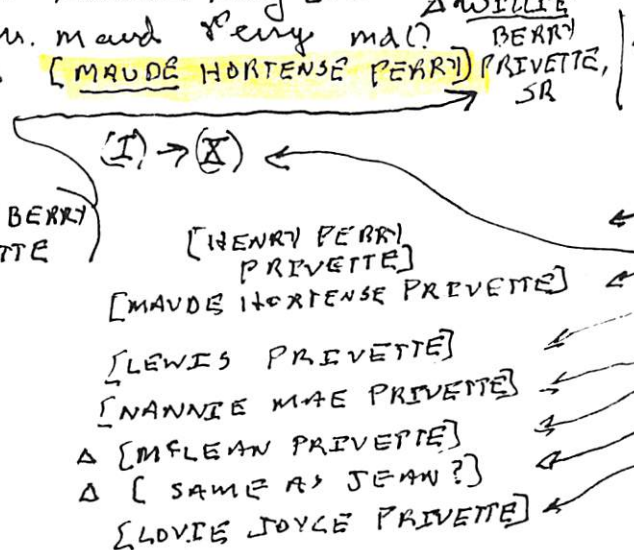 Δ WILLIE
m. maud Perry md?
BERRY
[MAUDE HORTENSE PERRY] PRIVETTE,
SR
(I) → (X)
BERRY
[HENRY PERRY
PRIVETTE]
[MAUDE HORTENSE PRIVETTE]
[LEWIS PRIVETTE]
[NANNIE MAE PRIVETTE]
Δ [MCLEAN PRIVETTE]
Δ [SAME AS JEAN?]
[LOVIE JOYCE PRIVETTE]